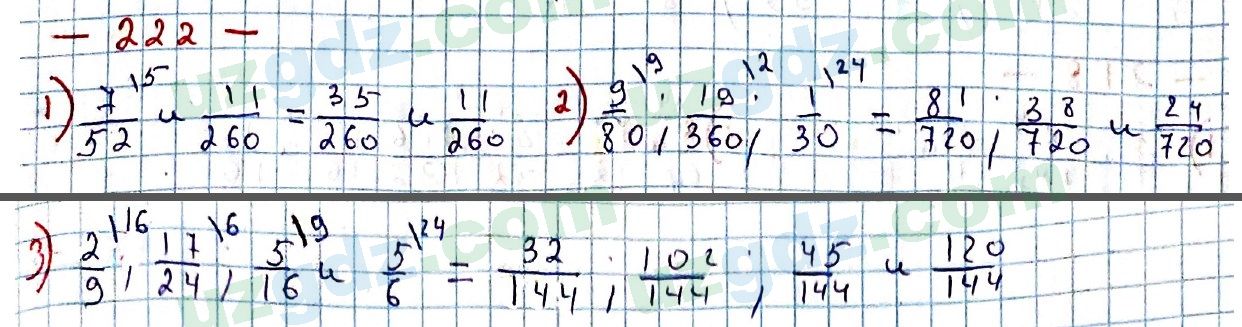 — 222 —
1) 7/52 \5 и 11/260 = 35/260 и 11/260 2) 9/80 \9 ; 19/360 \2 ; 1/30 \24 = 81/720 ; 38/720 и 24/720
3) 2/9 \16 ; 17/24 \6 , 5/16 \9 и 5/6 \24 = 32/144 ; 102/144 ; 45/144 и 120/144
uzgdz.com